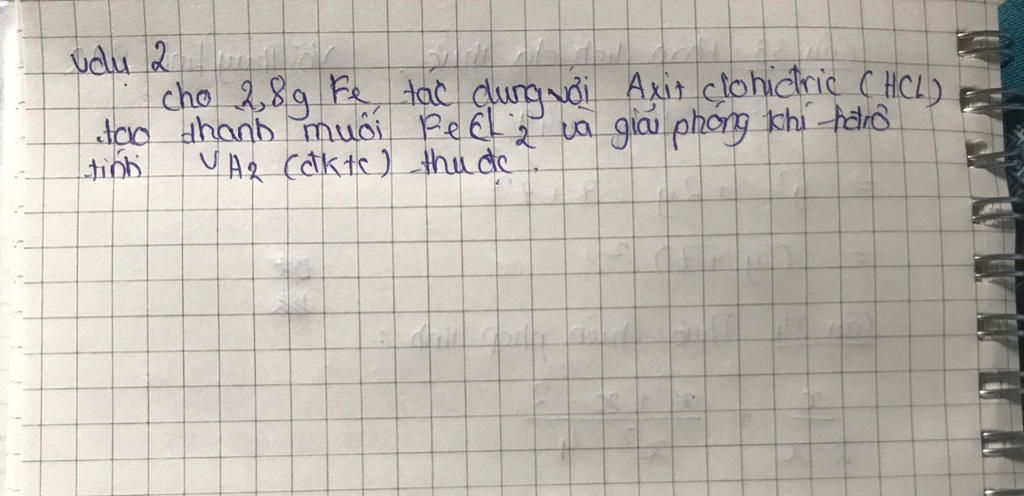 Vdụ 2
cho 2,8g Fe tác dụng với Axit clohiđric (HCL)
tạo thành muối FeCl2 và giải phóng khí hđrô
tính VH2 (đktc) thu đc.